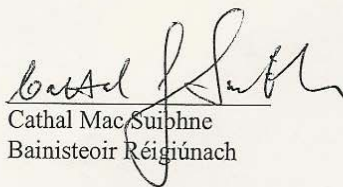 Cathal Mac Suibhne
Bainisteoir Réigiúnach